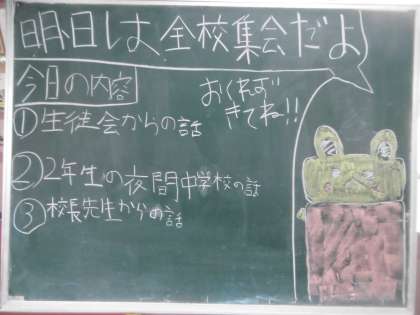 明日は全校集会だよ
今月の内容
おくれず
きてね!!
①生徒会からの話
②2年生の夜間中学校の話
③校長先生からの話